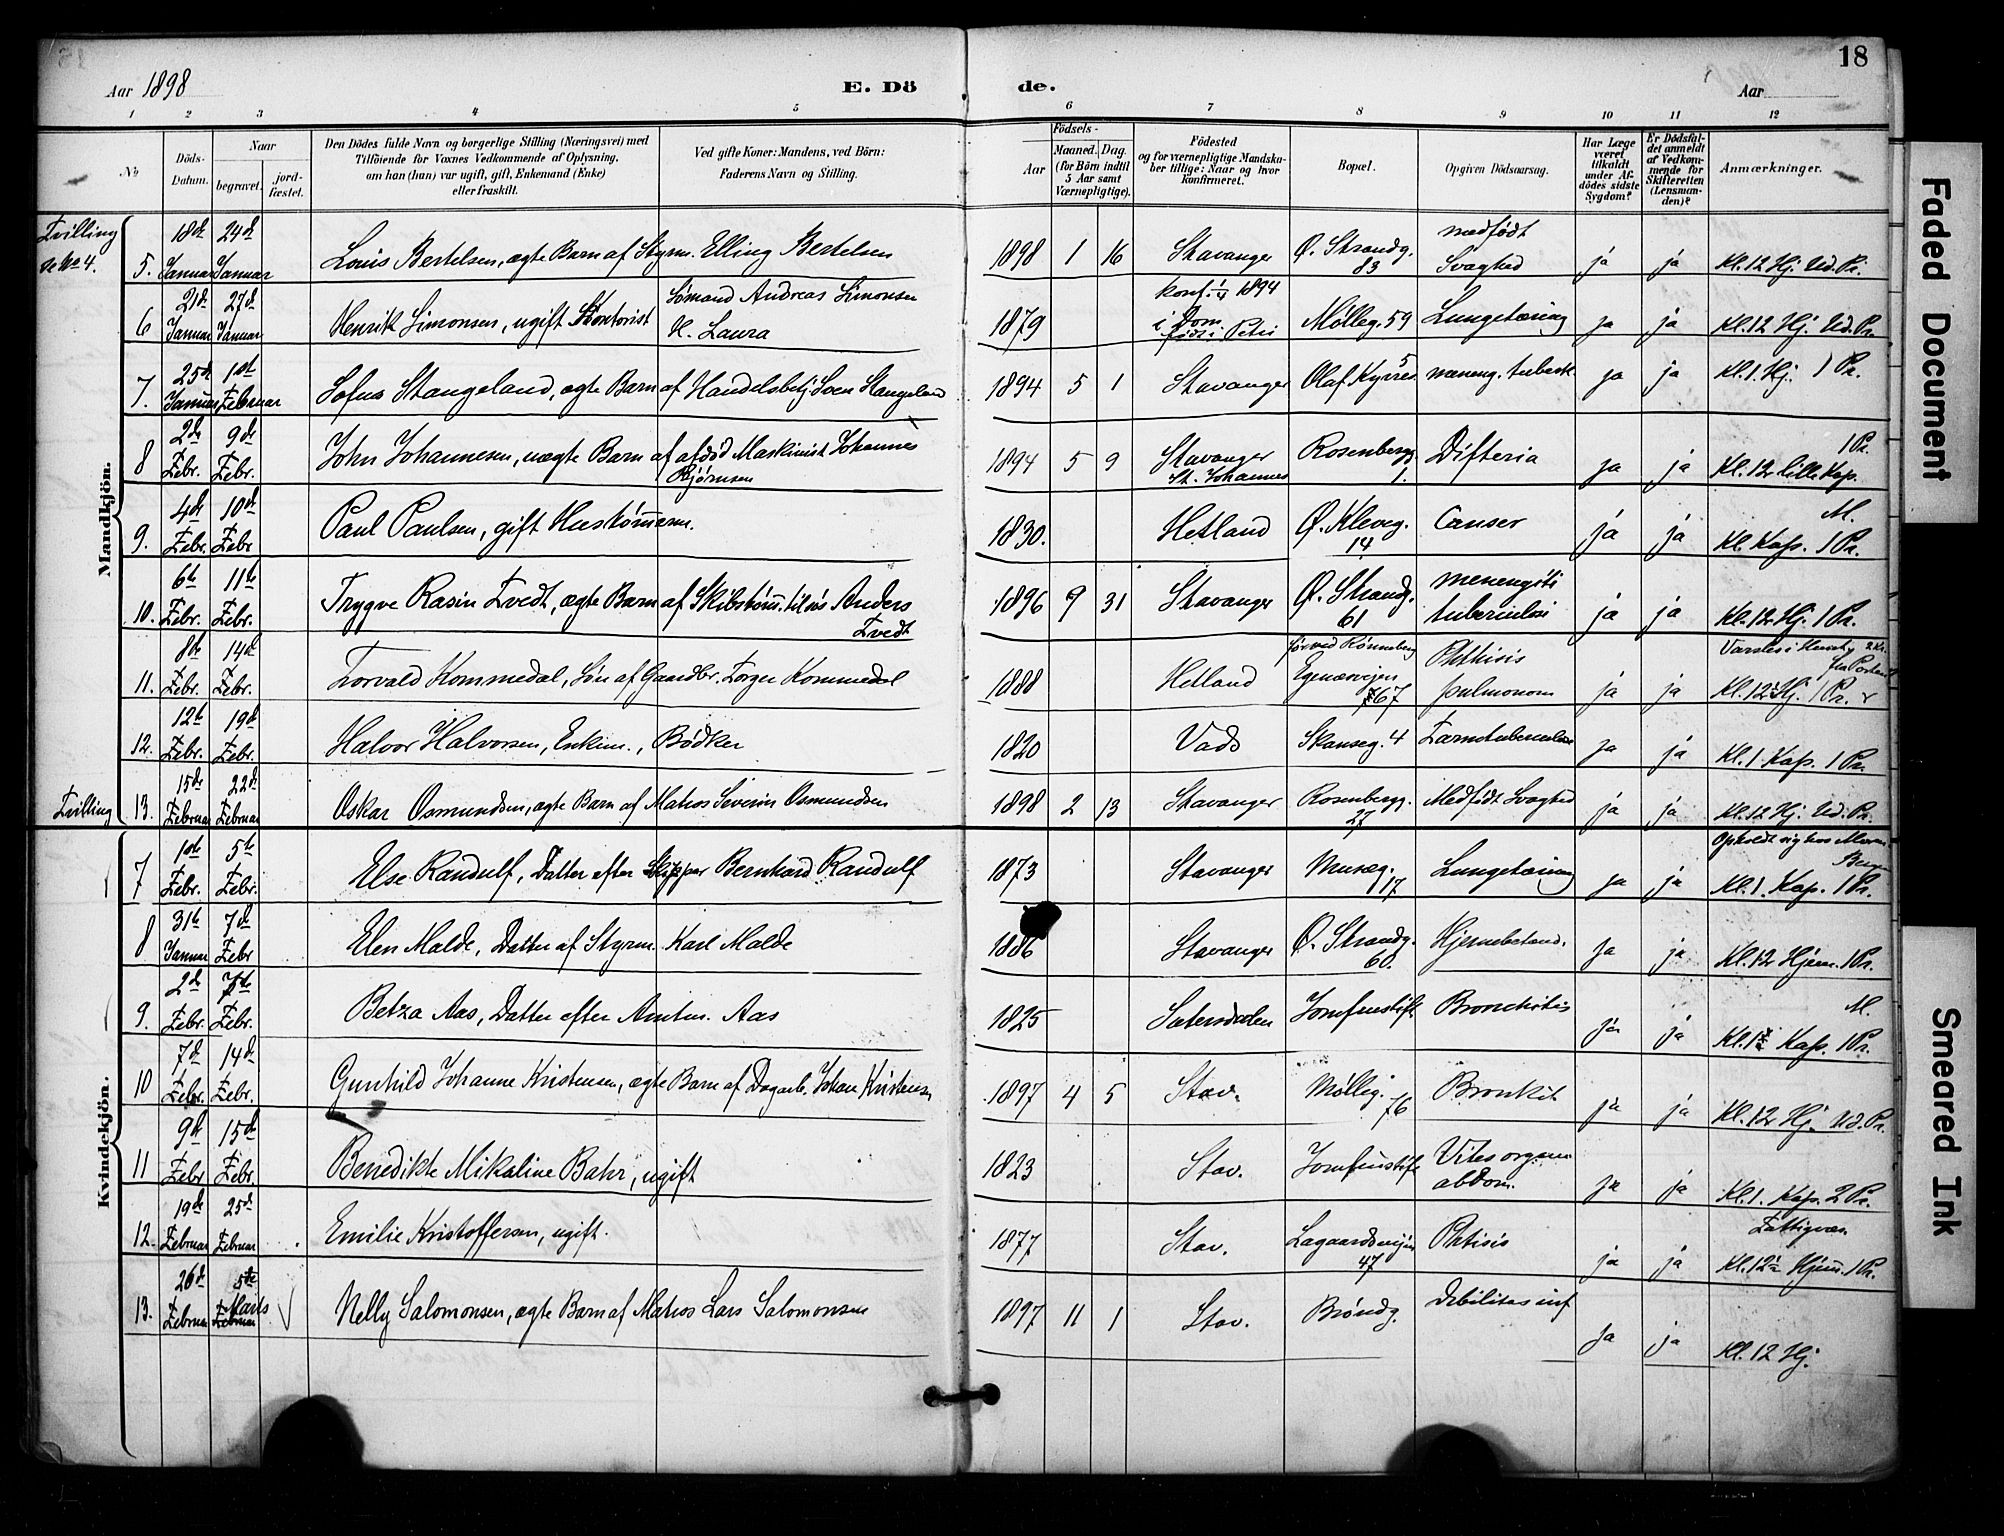 18
Aar 1898
E. Dö
de.
Aar
1 2 3 4 5 6 7 8 9 10 11 12
No
Döds-Datum.
Naar
begravet.
jord-fæstet.
Den Dödes fulde Navn og borgerlige Stilling (Næringsvei) med
Tilföiende for Voxnes Vedkommende af Oplysning,
om han (hun) var ugift, gift, Enkemand (Enke)
eller fraskilt.
Ved gifte Koner: Mandens, ved Börn:
Faderens Navn og Stilling.
Födsels-
Aar
Maaned. Dag.
(for Börn indtil
5 Aar samt
Værnepligtige).
Födested
og for værnepligtige Mandska-
ber tillige: Naar og hvor
konfirmeret.
Bopæl.
Opgiven Dödsaarsag.
Har Læge
været
tilkaldt
under Af-
dödes sidste
Sygdom?
Er Dödsfal-
det anmeldt
af Vedkom-
mende for
Skifteretten
(Lensman-
den)?
Anmærkninger.
Mandkjön.
Tvilling
5. 18de Januar 24de Januar Louis Bertelsen, ægte Barn af Styrm. Elling Bertelsen 1898 1 16 Stavanger Ø. Strandg. 83 medfødt Svaghed ja ja Kl. 12 Hj. Ud. Pr.
6 21de Januar 27de Januar Henrik Simonsen, ugift Kontorist Sømand Andreas Simonsen H. Laura 1879 konf. 1/4 1894 i Dom født i Petri Mølleg. 59 Lungetæring ja ja Kl. 12 Hj. Ud. Pr.
7. 25de Januar 1ste Februar Sofus Stangeland, ægte Barn af Handelsbetj. Sven Stangeland 1894 5 1 Stavanger Olaf Kyrres 5 meneng. tuberk ja ja Kl. 1. Hj. 1 Pr.
8 2de Febr. 9de Febr. John Johannesen, uægte Barn af afdød Maskinist Johannes Bjørnsen 1894 5 9 Stavanger St. Johannes Rosenbergg. 1. Difteria ja ja 1 Pr. Kl. 12 lille Kap.
9. 4de Febr. 10de Febr Paul Paulsen, gift Hustømmerm. 1830. Hetland Ø. Kleveg. 14 Canser ja ja M. Kl. Kap. 1 Pr.
10. 6te Febr. 11te Febr. Trygve Rasin Tvedt, ægte Barn af Skibstømm. tilsøs Anders Tvedt 1896 9 31 Stavanger Ø. Strandg. 61 menengiti tuberculosi ja ja Kl. 12 Hj. 1 Pr.
11. 8de Febr. 14de Febr. Torvald Kommedal, Søn af Gaardbr. Torger Kommedal 1888 Hetland Egnæsvejen 67 Phthisis pulmonom ja ja Kl. 12 Hj. 1 Pr.
12. 12te Febr. 19de Febr. Halvor Halvorsen, Enkem., Bødker 1820 Vads Skanseg. 4 Tarmtuberculose ja ja Kl. 1. Kap. 1 Pr.
Tvilling 13. 15de Februar 22de Februar Oskar Osmundsen, ægte Barn af Matros Severin Osmundsen 1898 2 13 Stavanger Rosenbergg. 27 Medfødt Svaghed ja ja Kl. 12 Hj. Ud. Pr.
Kvindekjön.
7 1ste Febr. 5te Febr. Else Randulf, Datter efter Skipper Bernhard Randulf 1873 Stavanger Musæg. 17 Lungetæring ja ja Kl. 1. Kap. 1 Pr.
8 31te Januar 7de Febr Elen Malde, Datter af Styrm. Karl Malde 1886 Stavanger Ø. Strandg. 60. Hjernebetænd. ja ja Kl. 12 Hjem. 1 Pr.
9. 2de Febr. Febr. Betza Aas, Datter efter Amtm. Aas 1825 Sætersdalen Jomfrustift. Bronchitis ja ja M. Kl. 1 Kap. 1 Pr.
10 7de Febr. 14de Febr. Gunhild Johanne Kristensen, ægte Barn af Dagarb. Johan Kristensen 1897 4 5 Stav. Mølleg. 76 Bronkit ja ja Kl. 12 Hj. Ud. Pr.
11 9de Febr 15de Febr. Benedikte Mikaline Bahr, ugift 1823 Stav. Jomfrustift Vites organ abdom. ja ja Kl. 1. Kap. 2 Pr.
12. 19de Februar 25de Februar Emilie Kristoffersen, ugift. 1877 Stav. Lagaardsveien 47 Phtisis ja ja Fattigvæs. Kl. 12 Hjem. 1 Pr.
13. 26de Februar 5te Marts Februar Nelly Salomonsen, ægte Barn af Matros Lars Salomonsen 1897 11 1 Stav. Brøndg. Debilitas inf ja ja Kl. 12 Hj.
Faded Document
Smeared Ink